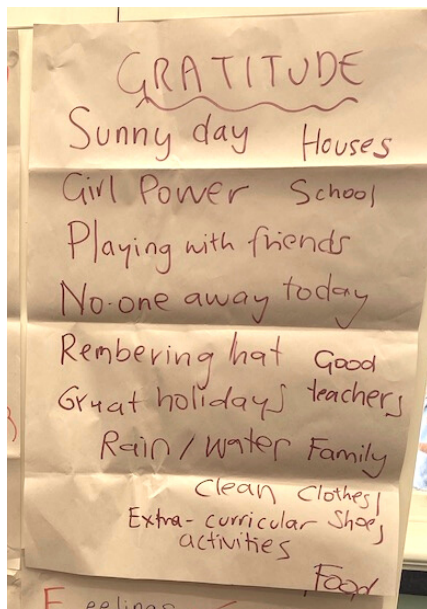 GRATITUDE
Sunny day Houses
Girl Power School
Playing with friends
No-one away today
Rembering hat Good
Great holidays teachers
Rain/water Family
Clean Clothes
Extra-curricular Shoes
activities
Food
Feelings